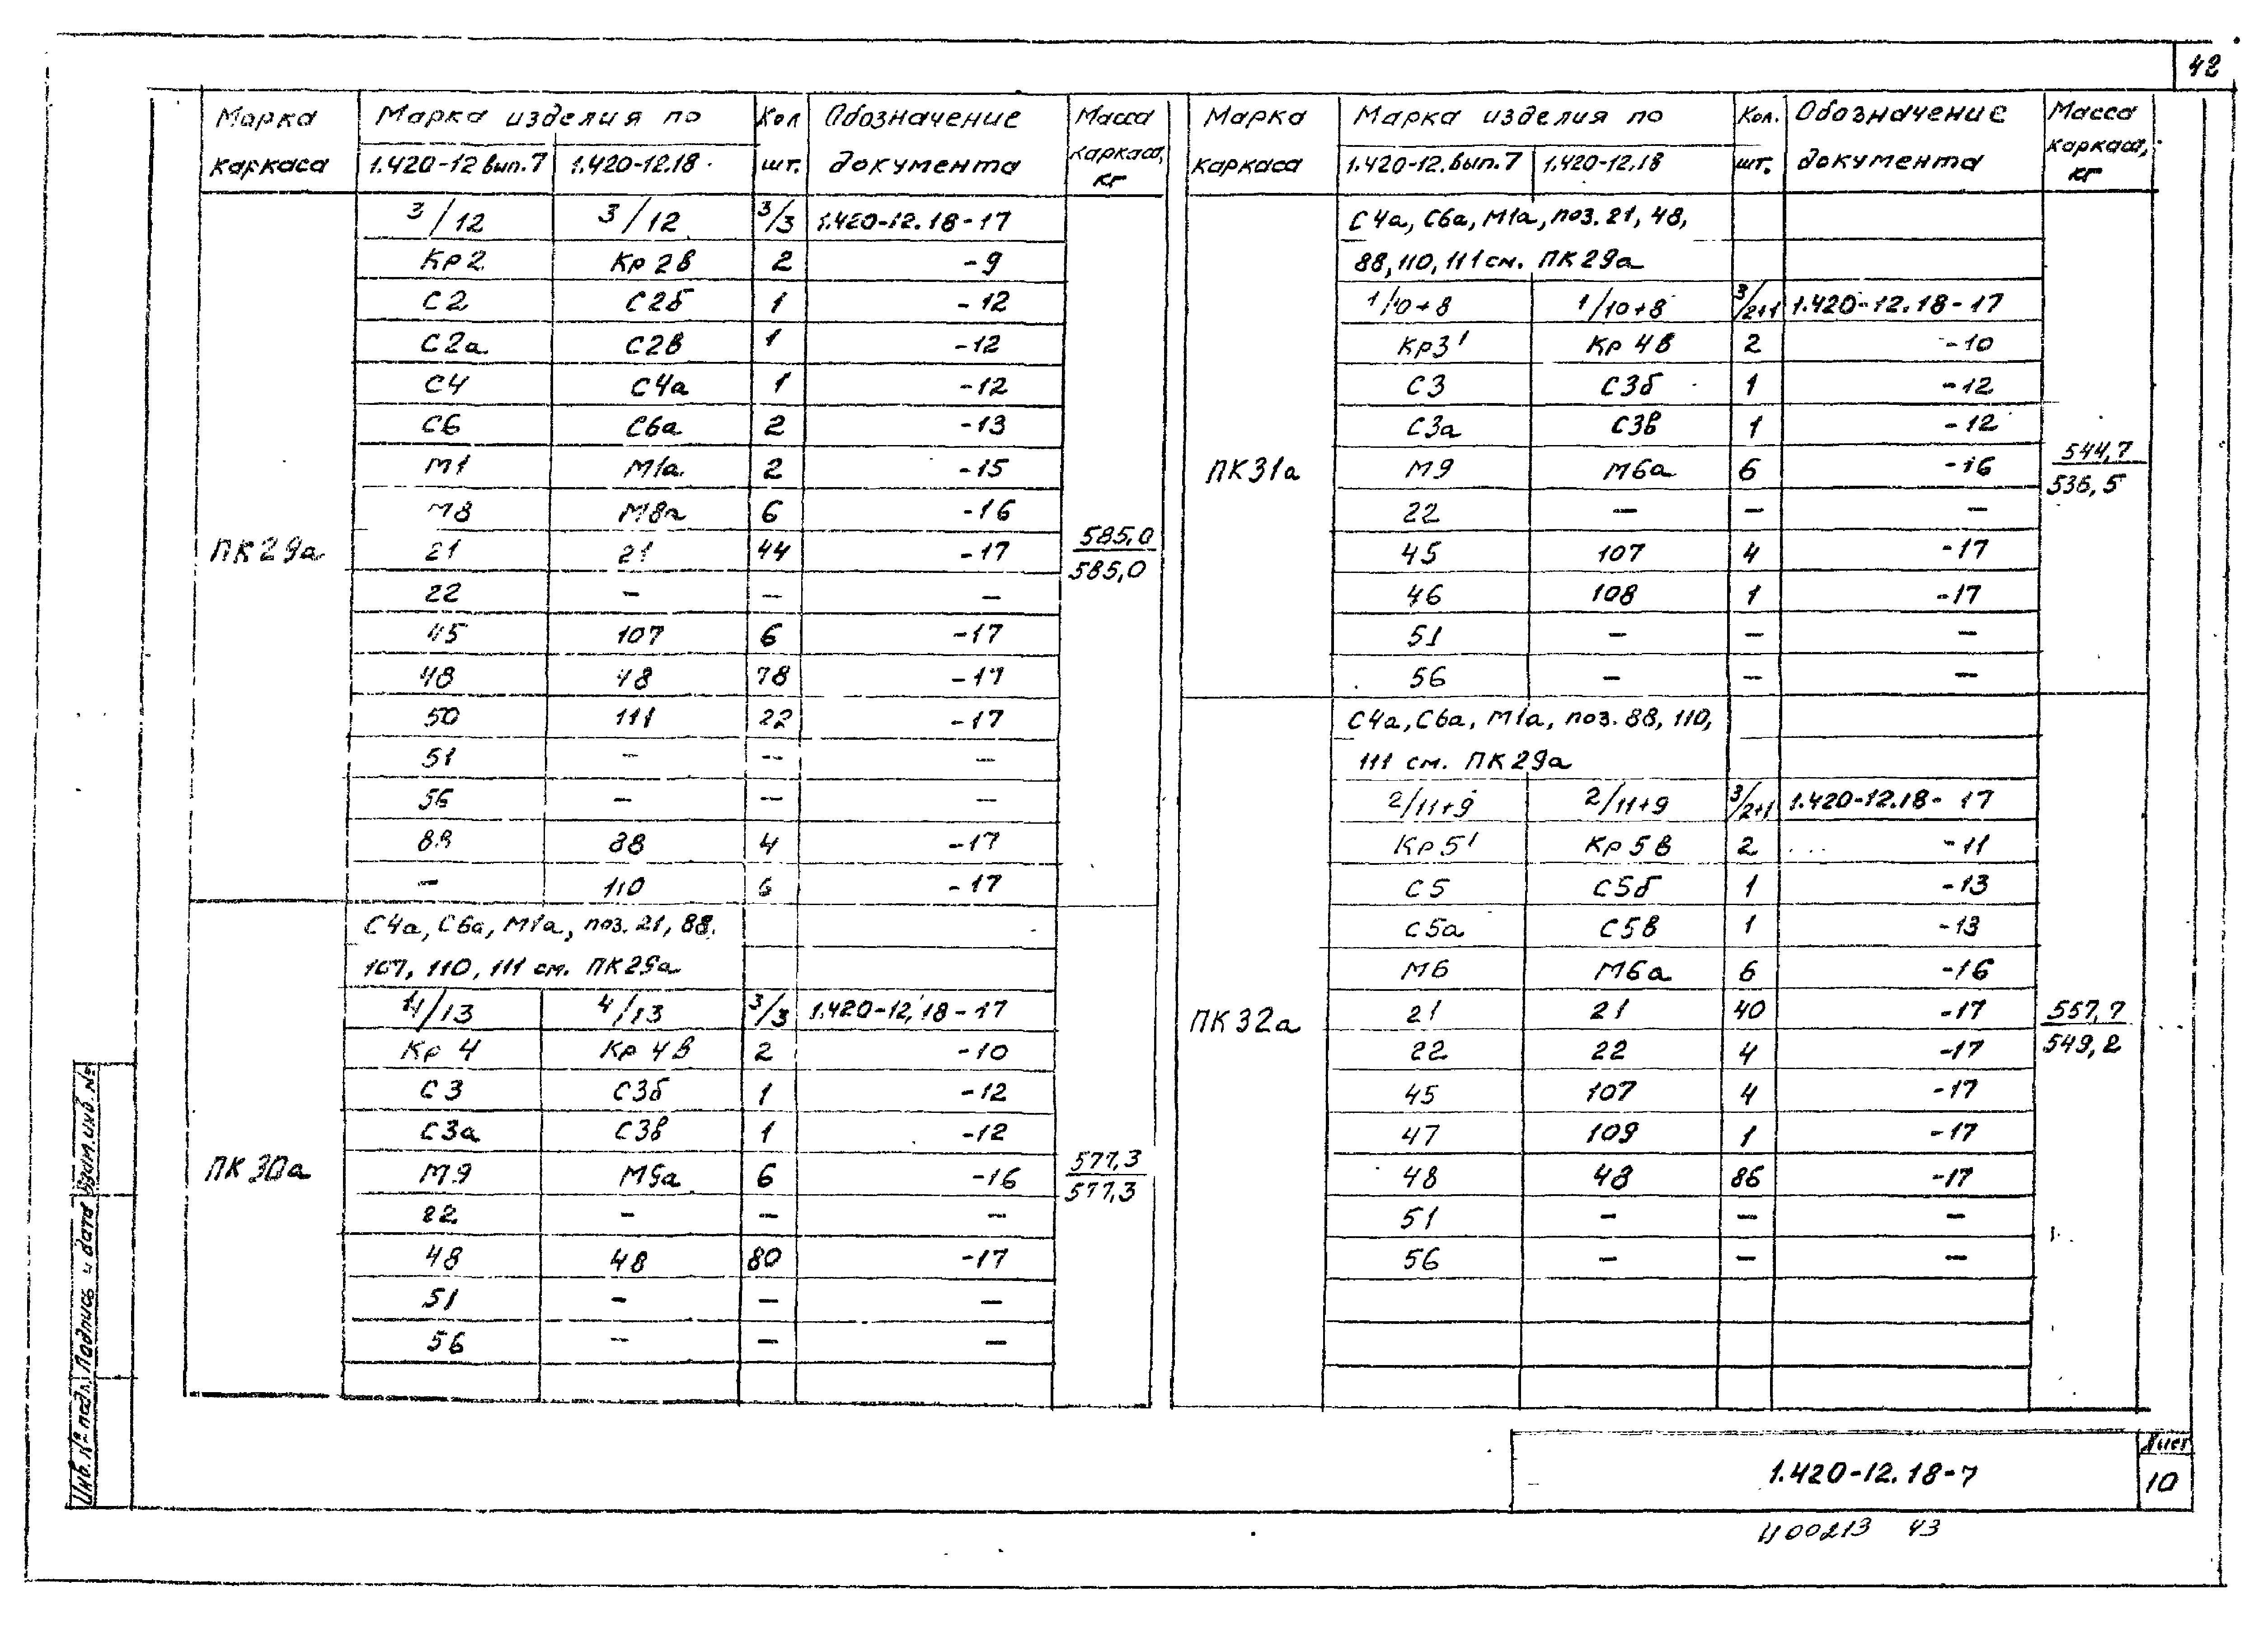 42
Марка каркаса | Марка изделия по | Кол шт. | Обозначение документа | Масса каркаса, кг
1.420-12 вып.7 | 1.420-12.18
ПК29а
3/12 | 3/12 | 3/3 | 1.420-12.18-17
Кр2 | Кр2в | 2 | -9
С2 | С2б | 1 | -12
С2а | С2в | 1 | -12
С4 | С4а | 1 | -12
С6 | С6а | 2 | -13
М1 | М1а | 2 | -15
М8 | М8а | 6 | -16
21 | 21 | 44 | -17
585,0/585,0
22 | — | — | —
45 | 107 | 6 | -17
48 | 48 | 78 | -17
50 | 111 | 22 | -17
51 | — | — | —
56 | — | — | —
88 | 88 | 4 | -17
— | 110 | 6 | -17
ПК30а
С4а, С6а, М1а, поз. 21, 88,
107, 110, 111 см. ПК29а
4/13 | 4/13 | 3/3 | 1.420-12.18-17
Кр 4 | Кр 4в | 2 | -10
С3 | С3б | 1 | -12
С3а | С3в | 1 | -12
М9 | М9а | 6 | -16
577,3/577,3
22 | — | — | —
48 | 48 | 80 | -17
51 | — | — | —
56 | — | — | —
Марка каркаса | Марка изделия по | Кол. шт. | Обозначение документа | Масса каркаса, кг
1.420-12.вып.7 | 1.420-12.18
ПК31а
С4а, С6а, М1а, поз. 21, 48,
88, 110, 111 см. ПК29а
1/10+8 | 1/10+8 | 3/2+1 | 1.420-12.18-17
Кр3' | Кр 4в | 2 | -10
С3 | С3б | 1 | -12
С3а | С3в | 1 | -12
М9 | М6а | 6 | -16
544,7/536,5
22 | — | — | —
45 | 107 | 4 | -17
46 | 108 | 1 | -17
51 | — | — | —
56 | — | — | —
ПК32а
С4а, С6а, М1а, поз. 88, 110,
111 см. ПК29а
2/11+9 | 2/11+9 | 3/2+1 | 1.420-12.18-17
Кр5' | Кр5в | 2 | -11
С5 | С5б | 1 | -13
С5а | С5в | 1 | -13
М6 | М6а | 6 | -16
21 | 21 | 40 | -17
557,7/549,2
22 | 22 | 4 | -17
45 | 107 | 4 | -17
47 | 109 | 1 | -17
48 | 48 | 86 | -17
51 | — | — | —
56 | — | — | —
Инв. № подл. Подпись и дата Взам. инв. №
1.420-12.18-7
Лист
10
Ц00213 43